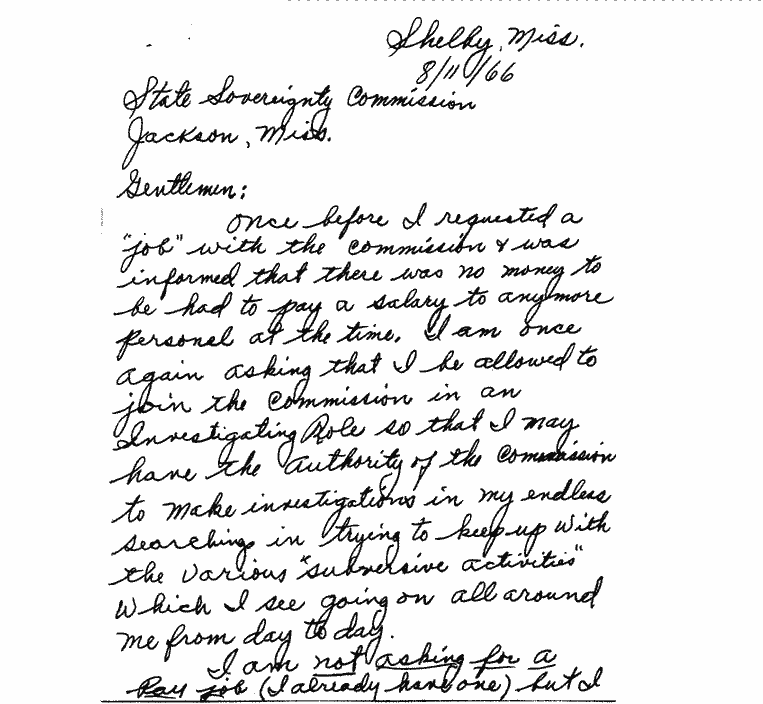 Shelby, Miss.
8/11/66
State Sovereignty Commission
Jackson, Miss.
Gentlemen:
Once before I requested a
"job" with the commission & was
informed that there was no money to
be had to pay a salary to anymore
personal at the time. I am once
again asking that I be allowed to
join the Commission in an
Investigating Role so that I may
have the authority of the Commission
to make investigations in my endless
searchings in trying to keep up with
the various "subversive activities"
which I see going on all around
me from day to day.
I am not asking for a
Pay job (I already have one) but I